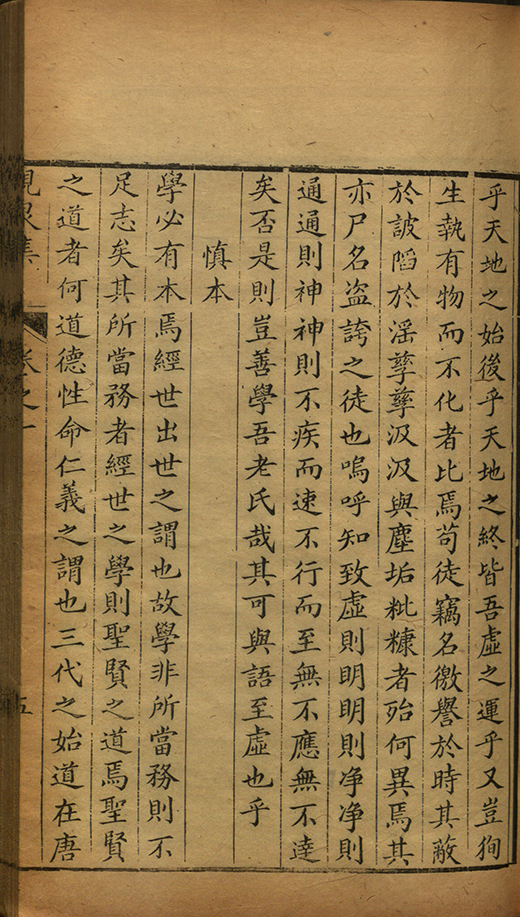 乎天地之始後乎天地之終皆吾虛之運乎又豈徇
生執有物而不化者比焉苟徒竊名徼譽於時其蔽
於詖陷於滛孳孳汲汲與塵垢粃糠者殆何異焉其
亦尸名盜誇之徒也嗚呼知致虛則明明則净净則
通通則神神則不疾而速不行而至無不應無不達
矣否是則豈善學吾老氏哉其可與語至虛也乎
慎本
學必有本焉經世出世之謂也故學非所當務則不
足志矣其所當務者經世之學則聖賢之道焉聖賢
之道者何道德性命仁義之謂也三代之始道在唐
峴泉集
卷之一
五